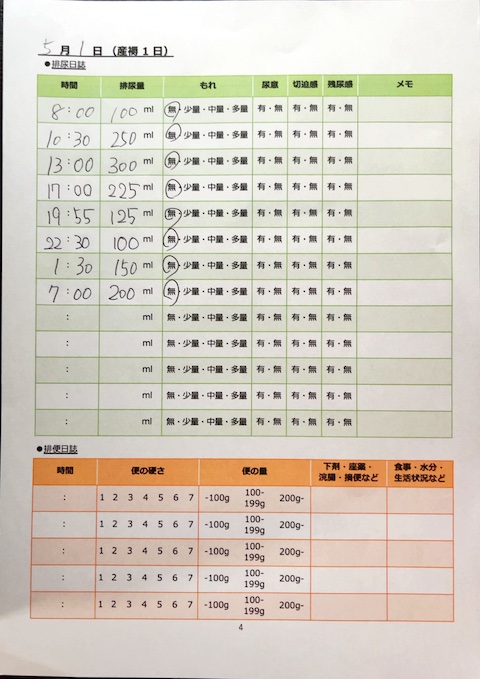 5月1日（産褥1日）
●排尿日誌
時間 排尿量 もれ 尿意 切迫感 残尿感 メモ
8:00 100 ml 無・少量・中量・多量 有・無 有・無 有・無
10:30 250 ml 無・少量・中量・多量 有・無 有・無 有・無
13:00 300 ml 無・少量・中量・多量 有・無 有・無 有・無
17:00 225 ml 無・少量・中量・多量 有・無 有・無 有・無
19:55 125 ml 無・少量・中量・多量 有・無 有・無 有・無
22:30 100 ml 無・少量・中量・多量 有・無 有・無 有・無
1:30 150 ml 無・少量・中量・多量 有・無 有・無 有・無
7:00 200 ml 無・少量・中量・多量 有・無 有・無 有・無
: ml 無・少量・中量・多量 有・無 有・無 有・無
: ml 無・少量・中量・多量 有・無 有・無 有・無
: ml 無・少量・中量・多量 有・無 有・無 有・無
: ml 無・少量・中量・多量 有・無 有・無 有・無
: ml 無・少量・中量・多量 有・無 有・無 有・無
●排便日誌
時間 便の硬さ 便の量 下剤・座薬・ 食事・水分・
浣腸・摘便など 生活状況など
: 1 2 3 4 5 6 7 -100g 100- 200g-
199g
: 1 2 3 4 5 6 7 -100g 100- 200g-
199g
: 1 2 3 4 5 6 7 -100g 100- 200g-
199g
: 1 2 3 4 5 6 7 -100g 100- 200g-
199g
: 1 2 3 4 5 6 7 -100g 100- 200g-
199g
4